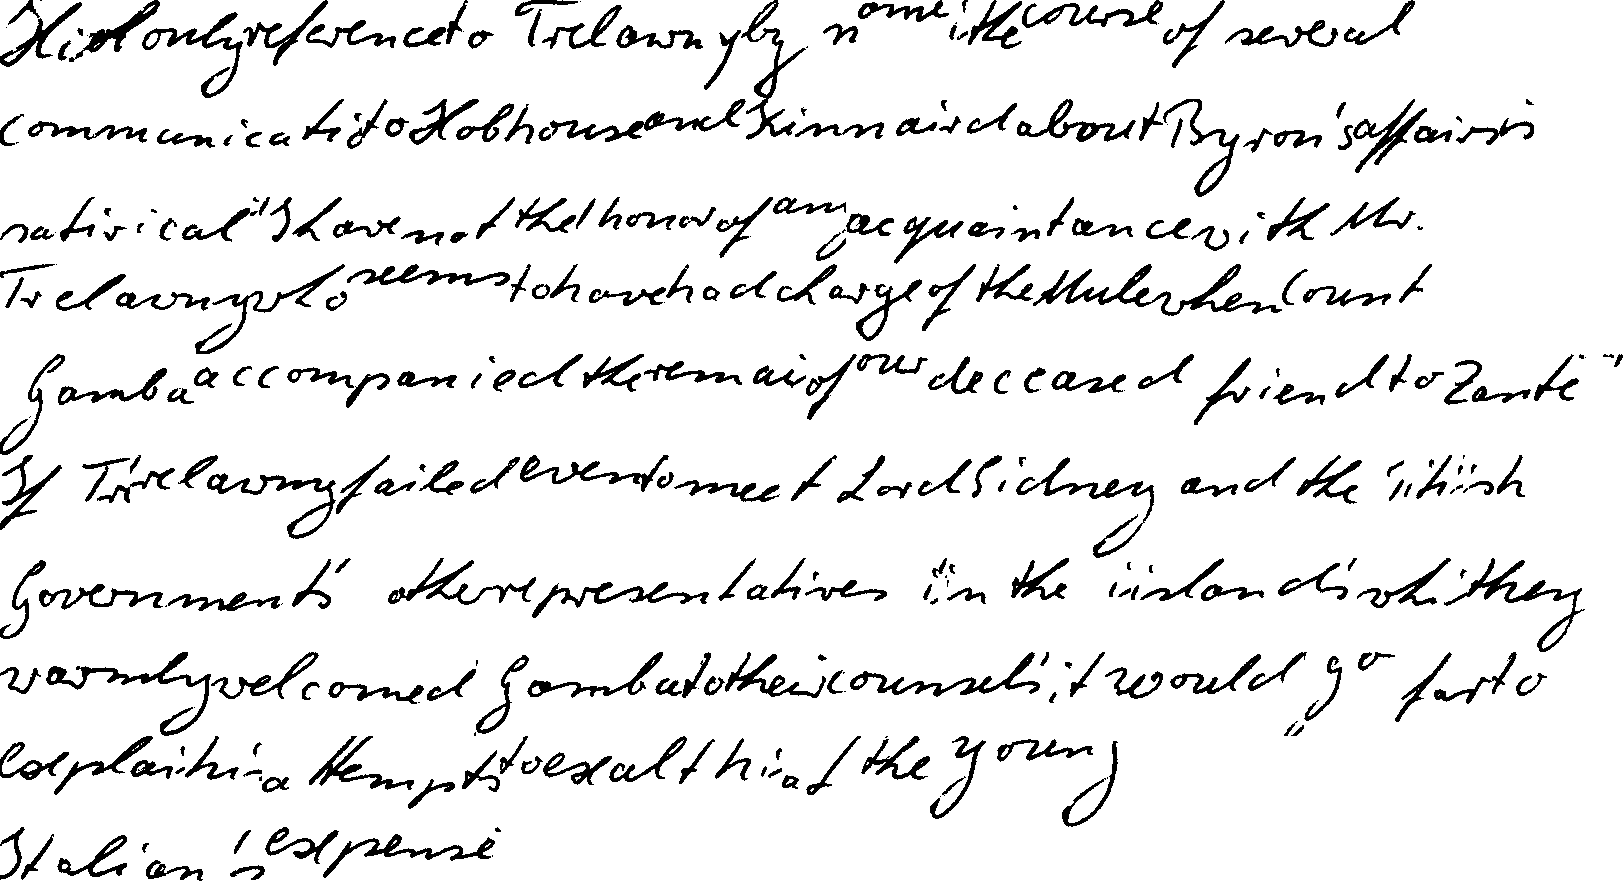 His only reference to Trelawny by name i the course of several
communicati to Hobhouse and Kinnaird about Byron's affairs is
satirical "I have not the honor of any acquaintance with Mr.
Trelawny who seems to have had charge of the Mule when Count
Gamba accompanied the remai of our deceased friend to Zante"
If Trelawny failed even to meet Lord Sidney and the
Government's other representatives in the islands whi they
warmly welcomed Gamba to their counsels, it would go far to
explain hi attempts to exalt hi at the young
Italian's expense